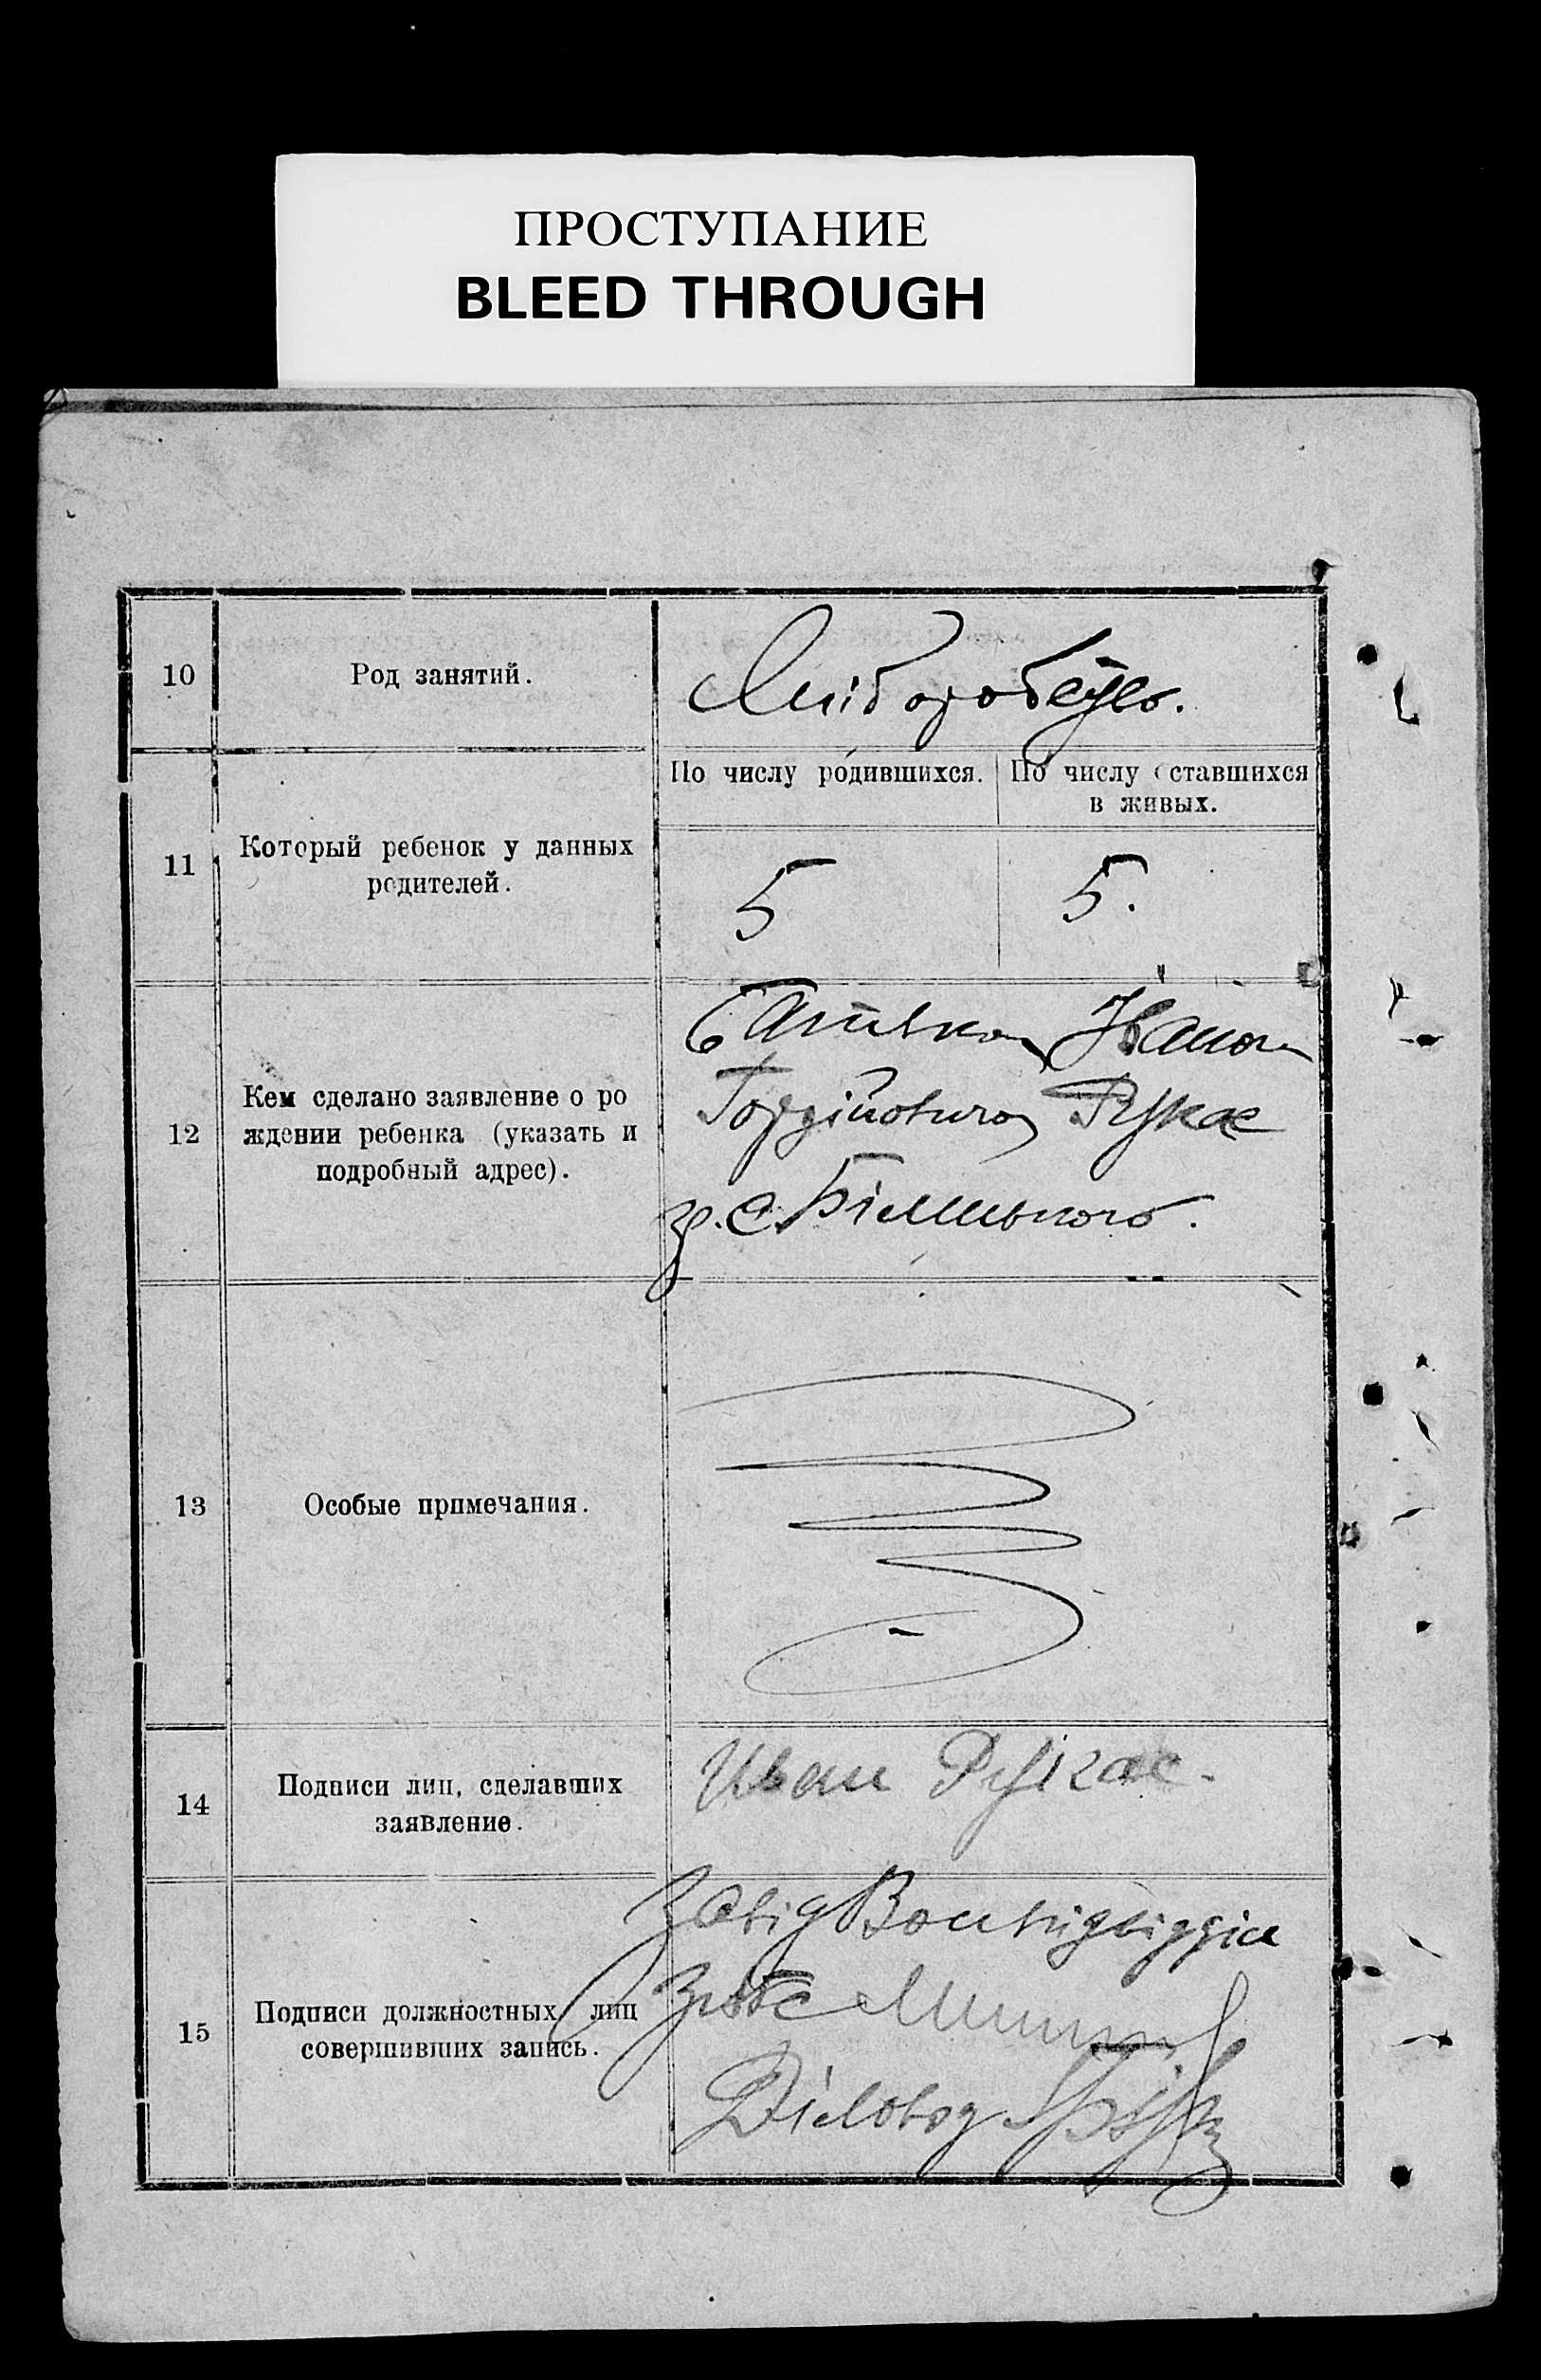 ПРОСТУПАНИЕ
BLEED THROUGH
10
Род занятий.
Хліборобець.
11
Который ребенок у данных
родителей.
По числу родившихся.
По числу оставшихся
в живых.
5
5.
12
Кем сделано заявление о ро
ждении ребенка (указать и
подробный адрес).
Батьком Іваном
Гордійовичом
гр. с.
13
Особые примечания.
14
Подписи лиц, сделавших
заявление.
Иван
15
Подписи должностных лиц
совершивших запись.
Завід
Діловод